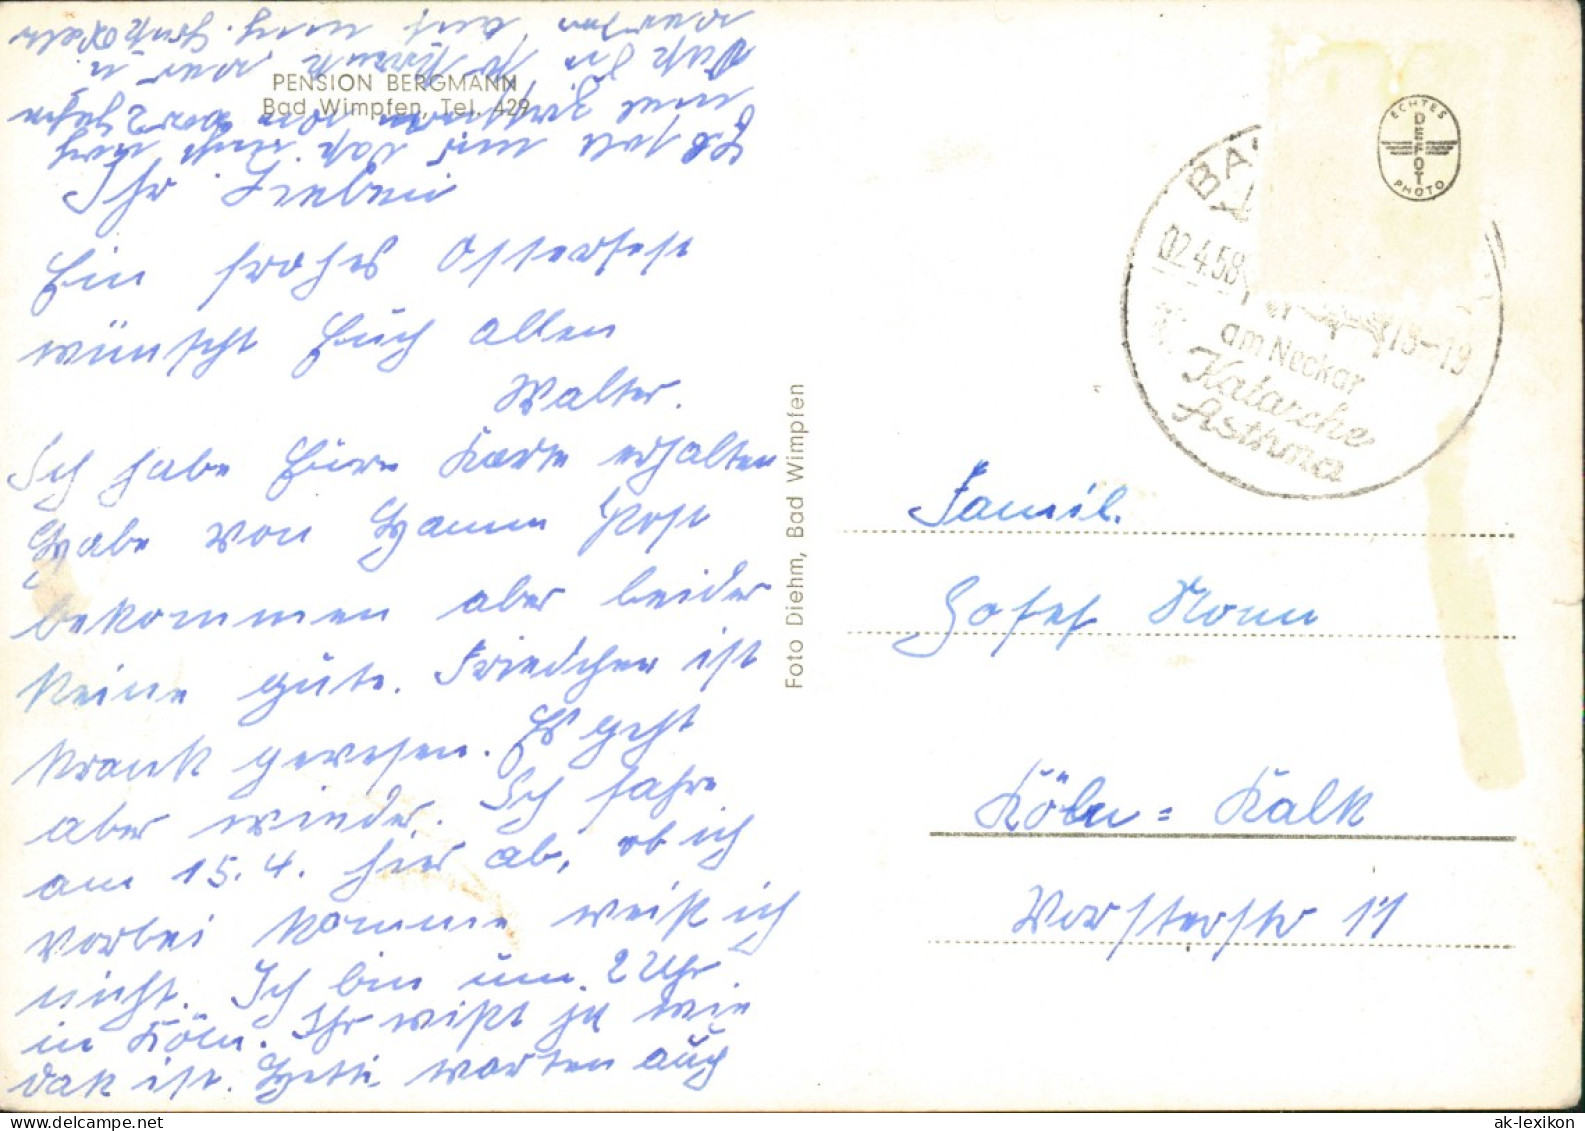 PENSION BERGMANN
Bad Wimpfen, Tel. 429
Ihr Lieben
Ein frohes Osterfest
wünscht Euch allen
Walter.
Ich habe Eure Karte erhalten
Habe von Hamm Post
bekommen aber leider
keine gute. Friedchen ist
krank gewesen. Es geht
aber wieder. Ich fahre
am 15.4. hier ab, ob ich
vorbei komme weiß ich
nicht. Ich bin um 2 Uhr
in Köln. Ihr wißt ja wie
daß ist. Hetti warten auch
Foto Diehm, Bad Wimpfen
ECHTES
DEFOT
PHOTO
BAD
02.4.58
18-19
am Neckar
Katarrhe
Asthma
Famil.
Josef Nonn
Köln=Kalk
Vorsterstr 11
ak-lexikon